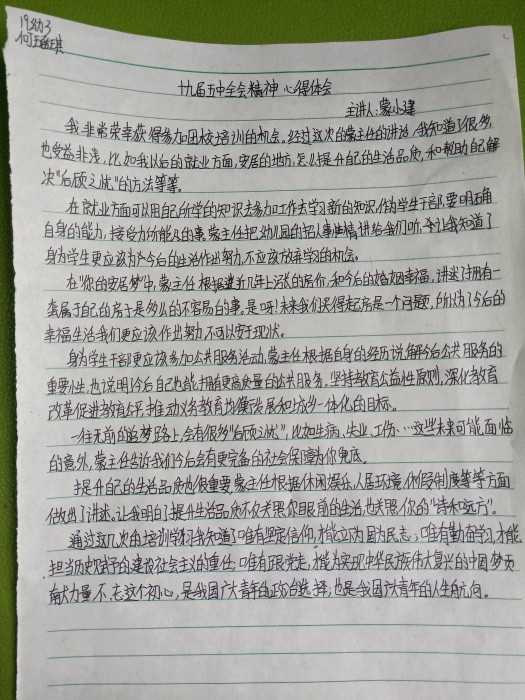 19幼3
何
十九届五中全会精神心得体会
主讲人:蒙小建
我非常荣幸获得参加团校培训的机会。经过这次的蒙主任的讲话,我知道了很多,
也受益非浅。比如我以后的就业方面,安居的地方,怎么提升自己的生活品质,和帮助自己解
决“后顾之忧”的方法等等。
在就业方面可以用自己所学的知识去参加工作去学习新的知识,作为学生干部,要明确
自身的能力,接受力所能及的事。蒙主任把幼儿园的把人事情讲给我们听,令让我知道了
身为学生更应该为今后的生活作出努力,不应该放弃学习的机会。
在“你的安居梦”中,蒙主任根据近几年上涨的房价,和今后的婚姻幸福,讲述了拥有一
套属于自己的房子是多么的不容易的事。是呀!未来我们买得起房是一个问题,所以为了今后的
幸福生活我们更应该作出努力不可以安于现状。
身为学生干部更应该参加公共服务活动,蒙主任根据自身的经历说解今后公共服务的
重要性,也说明今后自己也能拥有更高质量的公共服务。坚持教育公益性原则,深化教育
改革促进教育公平,推动义务教育均衡发展和城乡一体化的目标。
一往无前的追梦路上,会有很多“后顾之忧”,比如生病、失业、工伤…这些未来可能面临
的意外,蒙主任告诉我们今后会有更完备的社会保障为你兜底。
提升自己的生活品质也很重要,蒙主任根据休闲娱乐、人居环境、休假制度等等方面
做出了讲述。让我明白了提升生活品质不仅关照你眼前的生活,也关照你的“诗和远方”。
通过这几次的培训学习我知道了唯有坚定信仰,才能立为国为民志;唯有勤奋学习,才能
担当历史赋予的建设社会主义的重任;唯有跟党走,才能为实现中华民族伟大复兴的中国梦贡
献力量。不忘这个初心,是我国广大青年的政治选择,也是我国广大青年的人生航向。